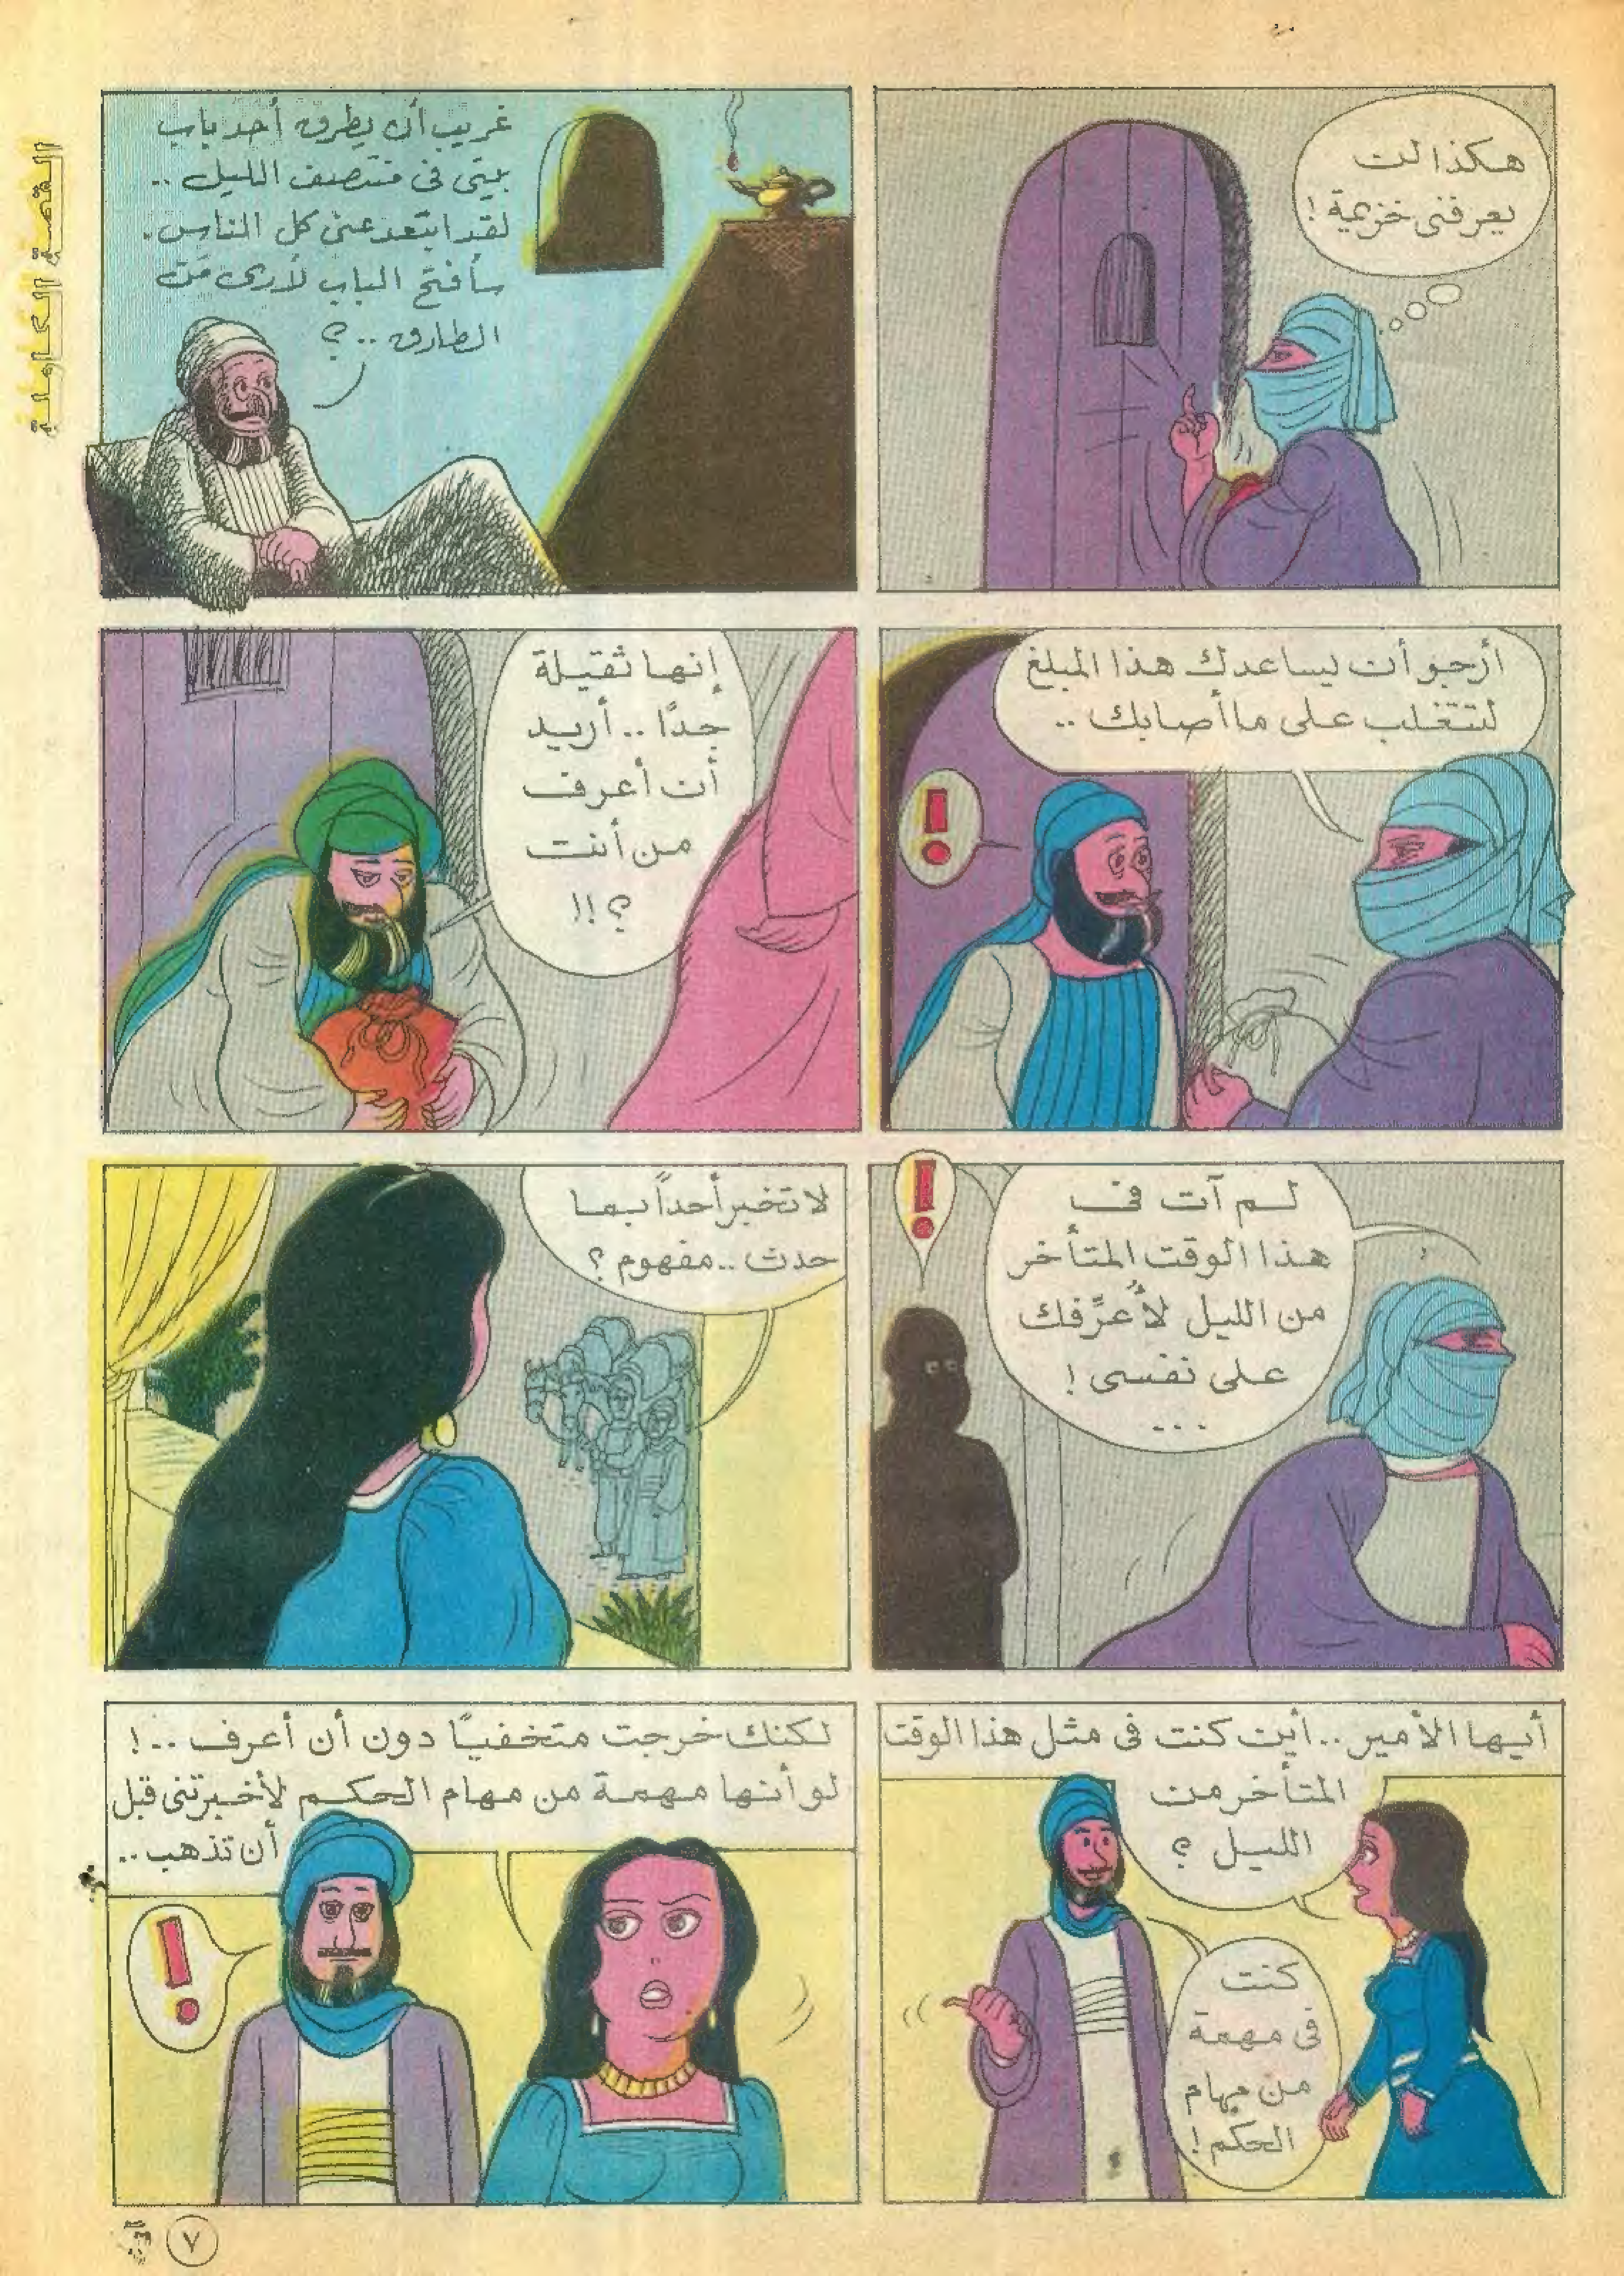 القصة الكاملة
هكذا لن
يعرفنى خزيمة!
غريب أن يطرق أحد باب
بيتى فى منتصف الليل ..
لقد ابتعد عنى كل الناس.
سأفتح الباب لأرى مَن
الطارق ..؟
أرجو أن يساعدك هذا المبلغ
لتتغلب على ما أصابك ..
!
إنها ثقيلة
جدًا .. أريد
أن أعرف
من أنت
؟!!
لم آت فى
هذا الوقت المتأخر
من الليل لأُعرِّفك
على نفسى!
...
!
لا تخبر أحداً بما
حدث .. مفهوم؟
أيها الأمير .. أين كنت فى مثل هذا الوقت
المتأخر من
الليل؟
كنت
فى مهمة
من مهام
الحكم!
لكنك خرجت متخفيًا دون أن أعرف ..!
لو أنها مهمة من مهام الحكم لأخبرتنى قبل
أن تذهب ..
!
٧